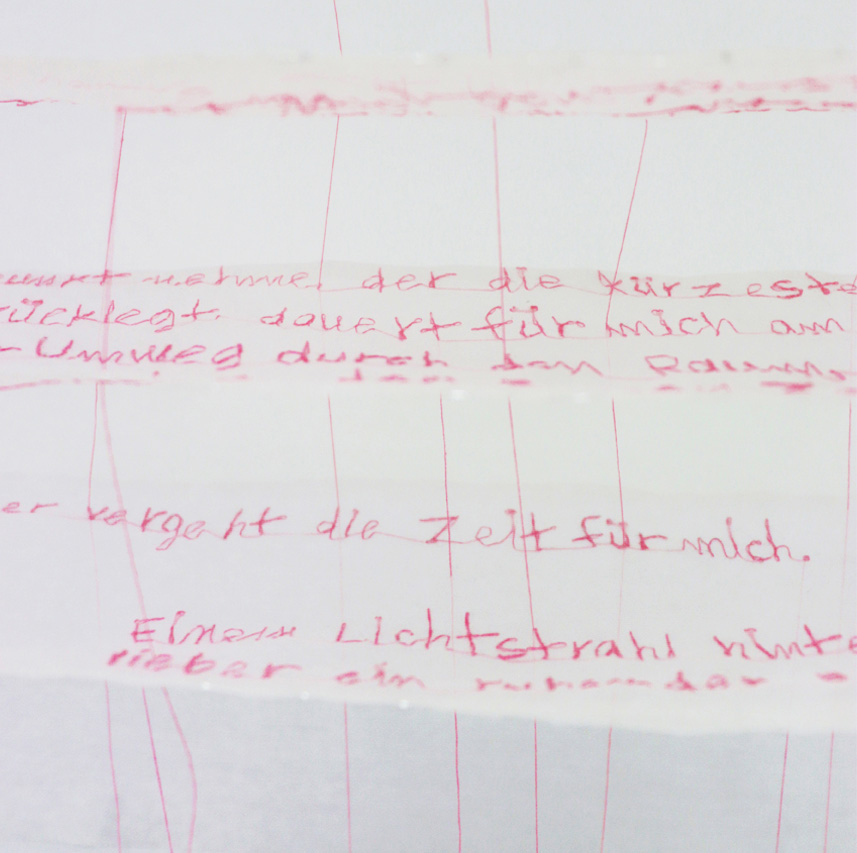 der die kürzeste
rücklegt. dauert für mich am
Umweg durch den Raum
er vergeht die Zeit für mich.
Einem Lichtstrahl hinte
lieber ein ruhender